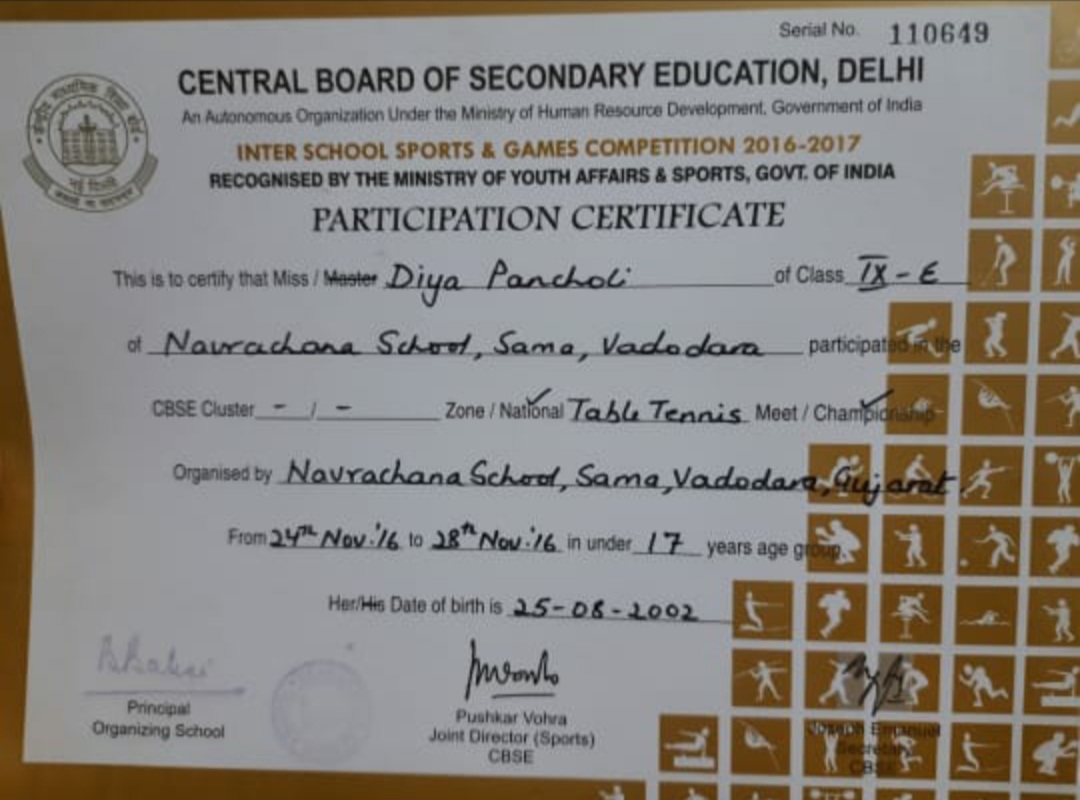 Serial No. 110649
CENTRAL BOARD OF SECONDARY EDUCATION, DELHI
An Autonomous Organization Under the Ministry of Human Resource Development, Government of India
INTER SCHOOL SPORTS & GAMES COMPETITION 2016-2017
RECOGNISED BY THE MINISTRY OF YOUTH AFFAIRS & SPORTS, GOVT. OF INDIA
PARTICIPATION CERTIFICATE
This is to certify that Miss / Master Diya Pancholi of Class IX - E
of Navrachana School, Sama, Vadodara participated in the
CBSE Cluster - / - Zone / National Table Tennis Meet / Championship
Organised by Navrachana School, Sama, Vadodara, Gujarat
From 24th Nov.'16 to 28th Nov.'16 in under 17 years age group.
Her/His Date of birth is 25-08-2002
Principal
Organizing School
Pushkar Vohra
Joint Director (Sports)
CBSE
Joseph Emanuel
Secretary
CBSE